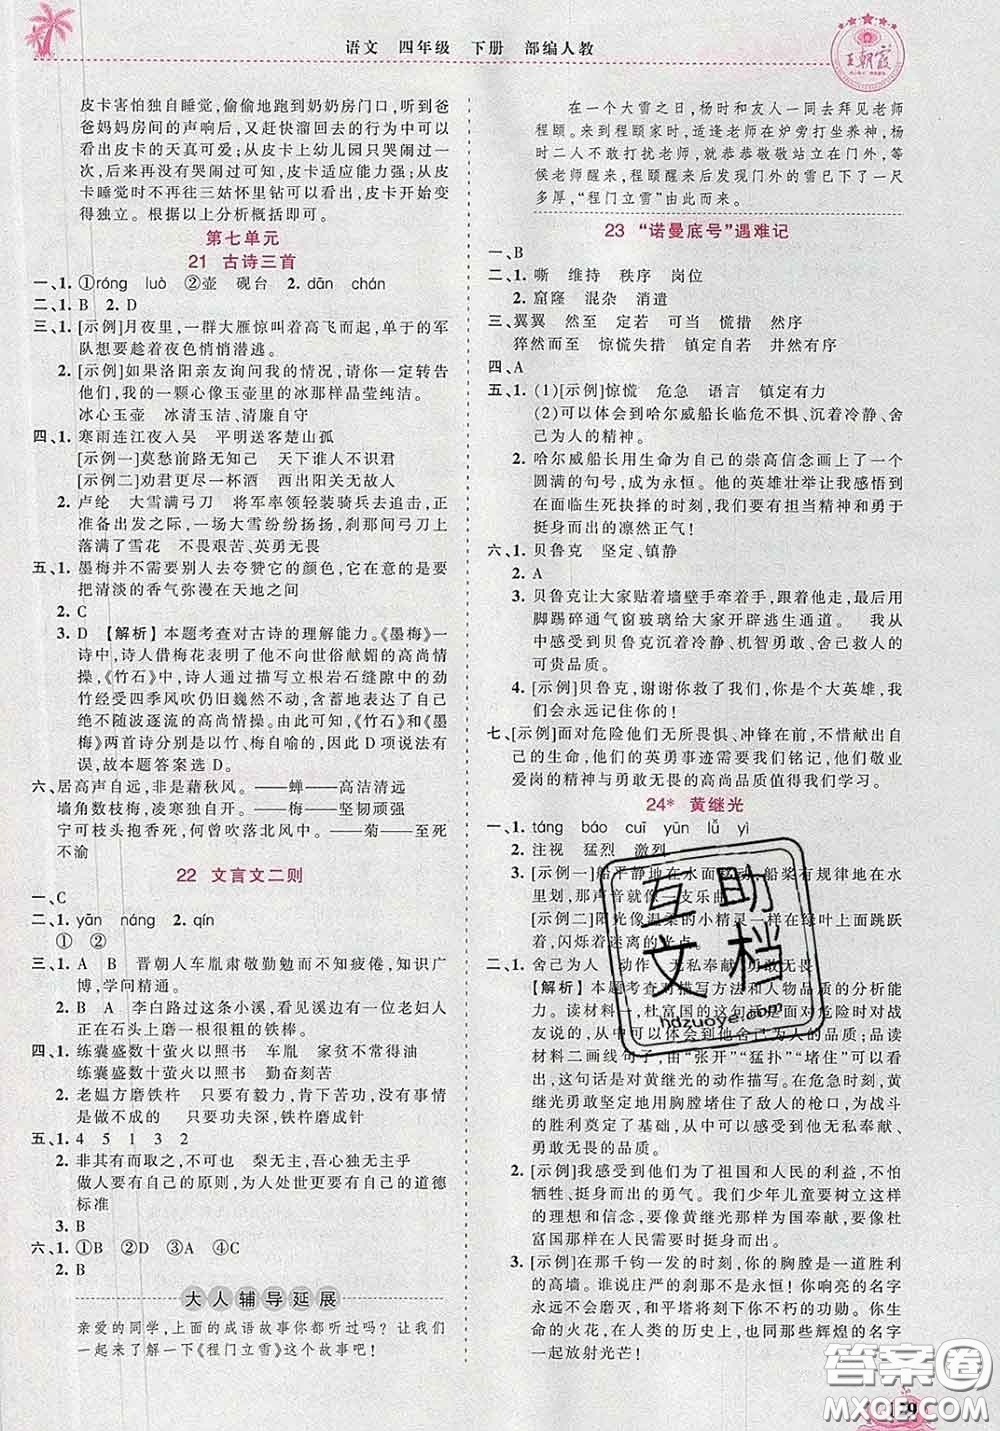 语文 四年级 下册 部编人教
王朝霞
皮卡害怕独自睡觉，偷偷地跑到奶奶房门口，听到爸
爸妈妈房间的声响后，又赶快溜回去的行为中可以
看出皮卡的天真可爱；从皮卡上幼儿园只哭闹过一
回，后来再没有哭闹过可知，皮卡适应能力强；从皮
卡睡觉时不再往三姑怀里钻可以看出，皮卡开始变
得独立。根据以上分析概括即可。
第七单元
21 古诗三首
一、1. ①róng luò ②壶 砚台 2. dān chán
二、1. B 2. D
三、1. [示例]月夜里，一群大雁惊叫着高飞而起，单于的军
队想要趁着夜色悄悄潜逃。
2. [示例]如果洛阳亲友询问我的情况，请你一定转告
他们，我的一颗心像玉壶里的冰那样晶莹纯洁。
冰心玉壶 冰清玉洁、清廉自守
四、1. 寒雨连江夜入吴 平明送客楚山孤
[示例一]莫愁前路无知己 天下谁人不识君
[示例二]劝君更尽一杯酒 西出阳关无故人
2. 卢纶 大雪满弓刀 将军率领轻装骑兵去追击，正
准备出发之际，一场大雪纷纷扬扬，刹那间弓刀上
落满了雪花 不畏艰苦、英勇无畏
五、1. 墨梅并不需要别人去夸赞它的颜色，它只是想要
把清淡的香气弥漫在天地之间
2. C
3. D 【解析】本题考查对古诗的理解能力。《墨梅》一
诗中，诗人借梅花表明了他不向世俗献媚的高尚情
操，《竹石》中，诗人通过描写立根岩石缝隙中的劲
竹经受四季风吹仍旧巍然不动，含蓄地表达了自己
绝不随波逐流的高尚情操。由此可知，《竹石》和《墨
梅》两首诗分别是以竹、梅自喻的，因此 D 项说法有
误，故本题答案选 D。
六、居高声自远，非是藉秋风。——蝉——高洁清廉
墙角数枝梅，凌寒独自开。——梅——坚韧顽强
宁可枝头抱香死，何曾吹落北风中。——菊——至死
不渝
22 文言文二则
一、C
二、1. yān náng 2. qín
① ②
三、1. A B 晋朝人车胤肃敬勤勉而不知疲倦，知识广
博，学问精通。
2. B A 李白路过这条小溪，看见溪边有一位老妇人
正在石头上磨一根很粗的铁棒。
四、1. 练囊盛数十萤火以照书 车胤 家贫不常得油
练囊盛数十萤火以照书 勤奋刻苦
2. 老媪方磨铁杵 只要有毅力，肯下苦功，事情是可以
做不成的 只要功夫深，铁杵磨成针
五、1. 4 5 1 3 2
2. 非其有而取之，不可也 梨无主，吾心独无主乎
做人要有自己的原则，为人处世更要有自己的道德
标准
3. B
六、1. ①B ②D ③A ④C
2. B
大人辅导延展
亲爱的同学，上面的成语故事你都听过吗？让我们
一起来了解一下《程门立雪》这个故事吧！
在一个大雪之日，杨时和友人一起去拜见老师
程颐。来到程颐家时，适逢老师在炉旁打坐养神，杨
时二人不敢打扰老师，就恭恭敬敬站立在门外，等
候老师醒来，程颐醒来后发现门外的雪已下了一尺
多厚，“程门立雪”由此而来。
23 “诺曼底号”遇难记
一、B
二、1. 嘶 维持 秩序 岗位
2. 窟窿 混杂 消遣
三、翼翼 然至 定若 可当 慌措 然序
猝然而至 惊慌失措 镇定自若 井然有序
四、A
五、1. (1)[示例]惊慌 危急 语言 镇定有力
(2)可以体会到哈尔威船长临危不惧、沉着冷静、舍
己为人的精神。
2. 哈尔威船长用生命为自己的崇高信念画上了一个
圆满的句号，成为永恒。他的英雄壮举让我感悟到
在面临生死抉择的时刻，我们要拥有敢于承担和勇于
挺身而出的凛然正气！
六、1. 贝鲁克 坚定、镇静
2. A
3. 贝鲁克让大家贴着墙壁手牵着手，自己摸过去用
脚踢碎通气窗玻璃给大家开辟逃生通道。 我从
中感受到贝鲁克沉着冷静、机智勇敢、舍己为人的
可贵品质。
4. [示例]贝鲁克，谢谢你救了我们，你是个大英雄，我
们会永远记住你的！
七、[示例]面对危险他们无所畏惧、冲锋在前，不惜献出自
己的生命，他们的英勇事迹需要我们铭记，他们敬业
爱岗的精神与勇敢无畏的高尚品质值得我们学习。
24* 黄继光
一、1. táng báo cuī yūn lǚ yì
2. 注视 猛烈 激烈
3. [示例一]船平静地在水面移动，船桨有规律地在水
里划，那声音就像一支乐曲。
[示例二]阳光像温柔的小精灵一样在绿叶上面跳跃
着，闪烁着迷离的光。
二、1. 舍己为人 动作 无私奉献、勇敢无畏
【解析】本题考查对描写方法和人物品质的分析能
力。读材料一，杜富国的这句话是面对危险时对战
友说的，从中可以体会到他舍己为人的品质；品读
材料二画线句子，由“张开”“猛扑”“堵住”可以看
出，这句话是对黄继光的动作描写。在危急时刻，黄
继光勇敢坚定地用胸膛堵住了敌人的枪口，为战斗
的胜利奠定了基础，从中可以感受到他无私奉献、
勇敢无畏的品质。
2. [示例]我感受到他们为了祖国和人民的利益，不怕
牺牲、挺身而出的勇气。我们少年儿童要树立这样
的信念，要像黄继光那样为国奉献，要像杜
富国那样挺身而出，为人民奉献。
3. [示例]在那千钧一发的时刻，你的胸膛是一道胜利
的高墙。谁说庄严的刹那不是永恒！你响亮的名字
永远不会磨灭，和平塔将刻下你不朽的功勋，你的名
字，在人类的历史上，也必将同那些辉煌的名字
一起放射光芒！
互助文档
hdzuoye.com
答案圈
MXQE.COM